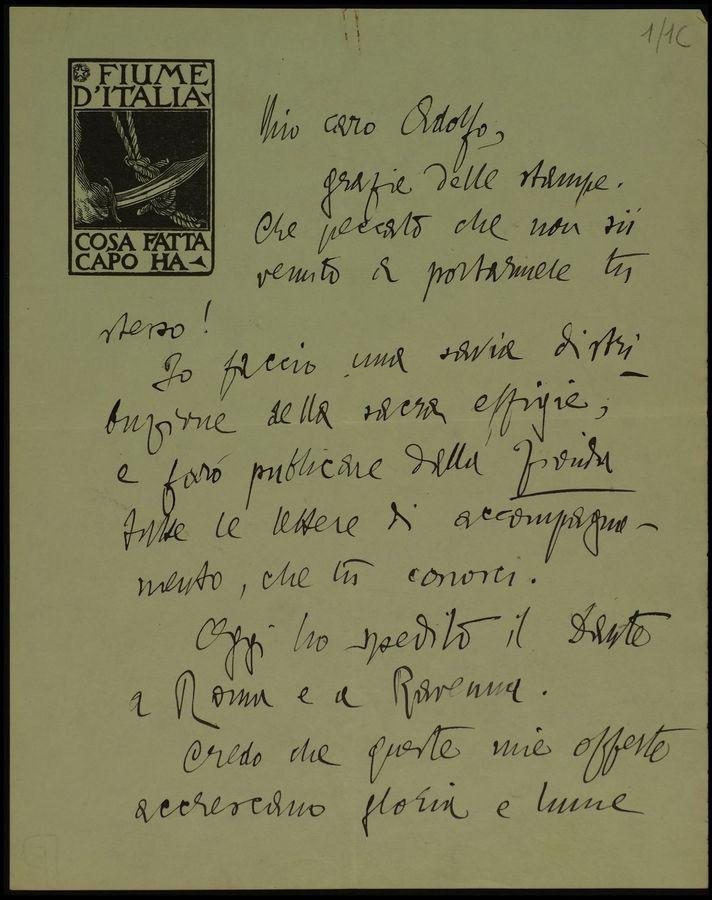 1/1C
FIUME
D'ITALIA
COSA FATTA
CAPO HA
Mio caro Adolfo,
grazie delle stampe.
Che peccato che non sii
venuto a portarmele tu
stesso!
Io faccio una savia distri
buzione della sacra effigie,
e farò publicare dalla Fionda
tutte le lettere di accompagna-
mento, che tu conosci.
Oggi ho spedito il Dante
a Roma e a Ravenna.
Credo che queste mie offerte
accrescano gloria e lume